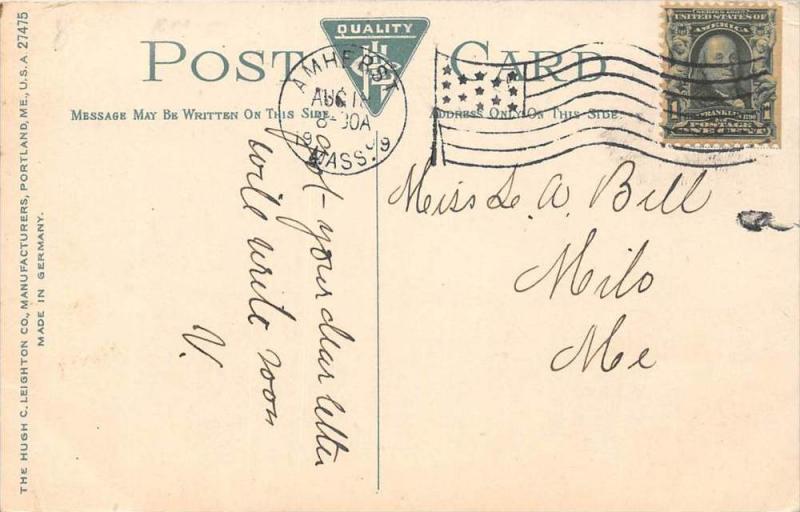 POST CARD
QUALITY
MESSAGE MAY BE WRITTEN ON THIS SIDE
ADDRESS ONLY ON THIS SIDE
AMHERST
AUG
8-30A
MASS.
SERIES 1902
UNITED STATES OF
AMERICA
FRANKLIN
POSTAGE
ONE CENT
1 1
Got your dear letter
will write soon
V.
Miss L. A. Bill
Milo
Me
THE HUGH C. LEIGHTON CO., MANUFACTURERS, PORTLAND, ME., U.S.A. 27475
MADE IN GERMANY.